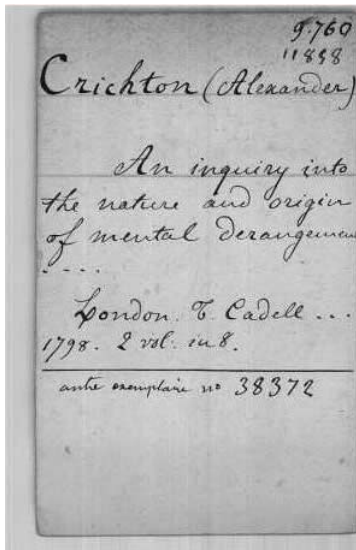 9.760
11898
Crichton (Alexander)
An inquiry into
the nature and origin
of mental derangemen
. - - .
London. T. Cadell ...
1798. 2 vol. in 8.
autre exemplaire no 38372